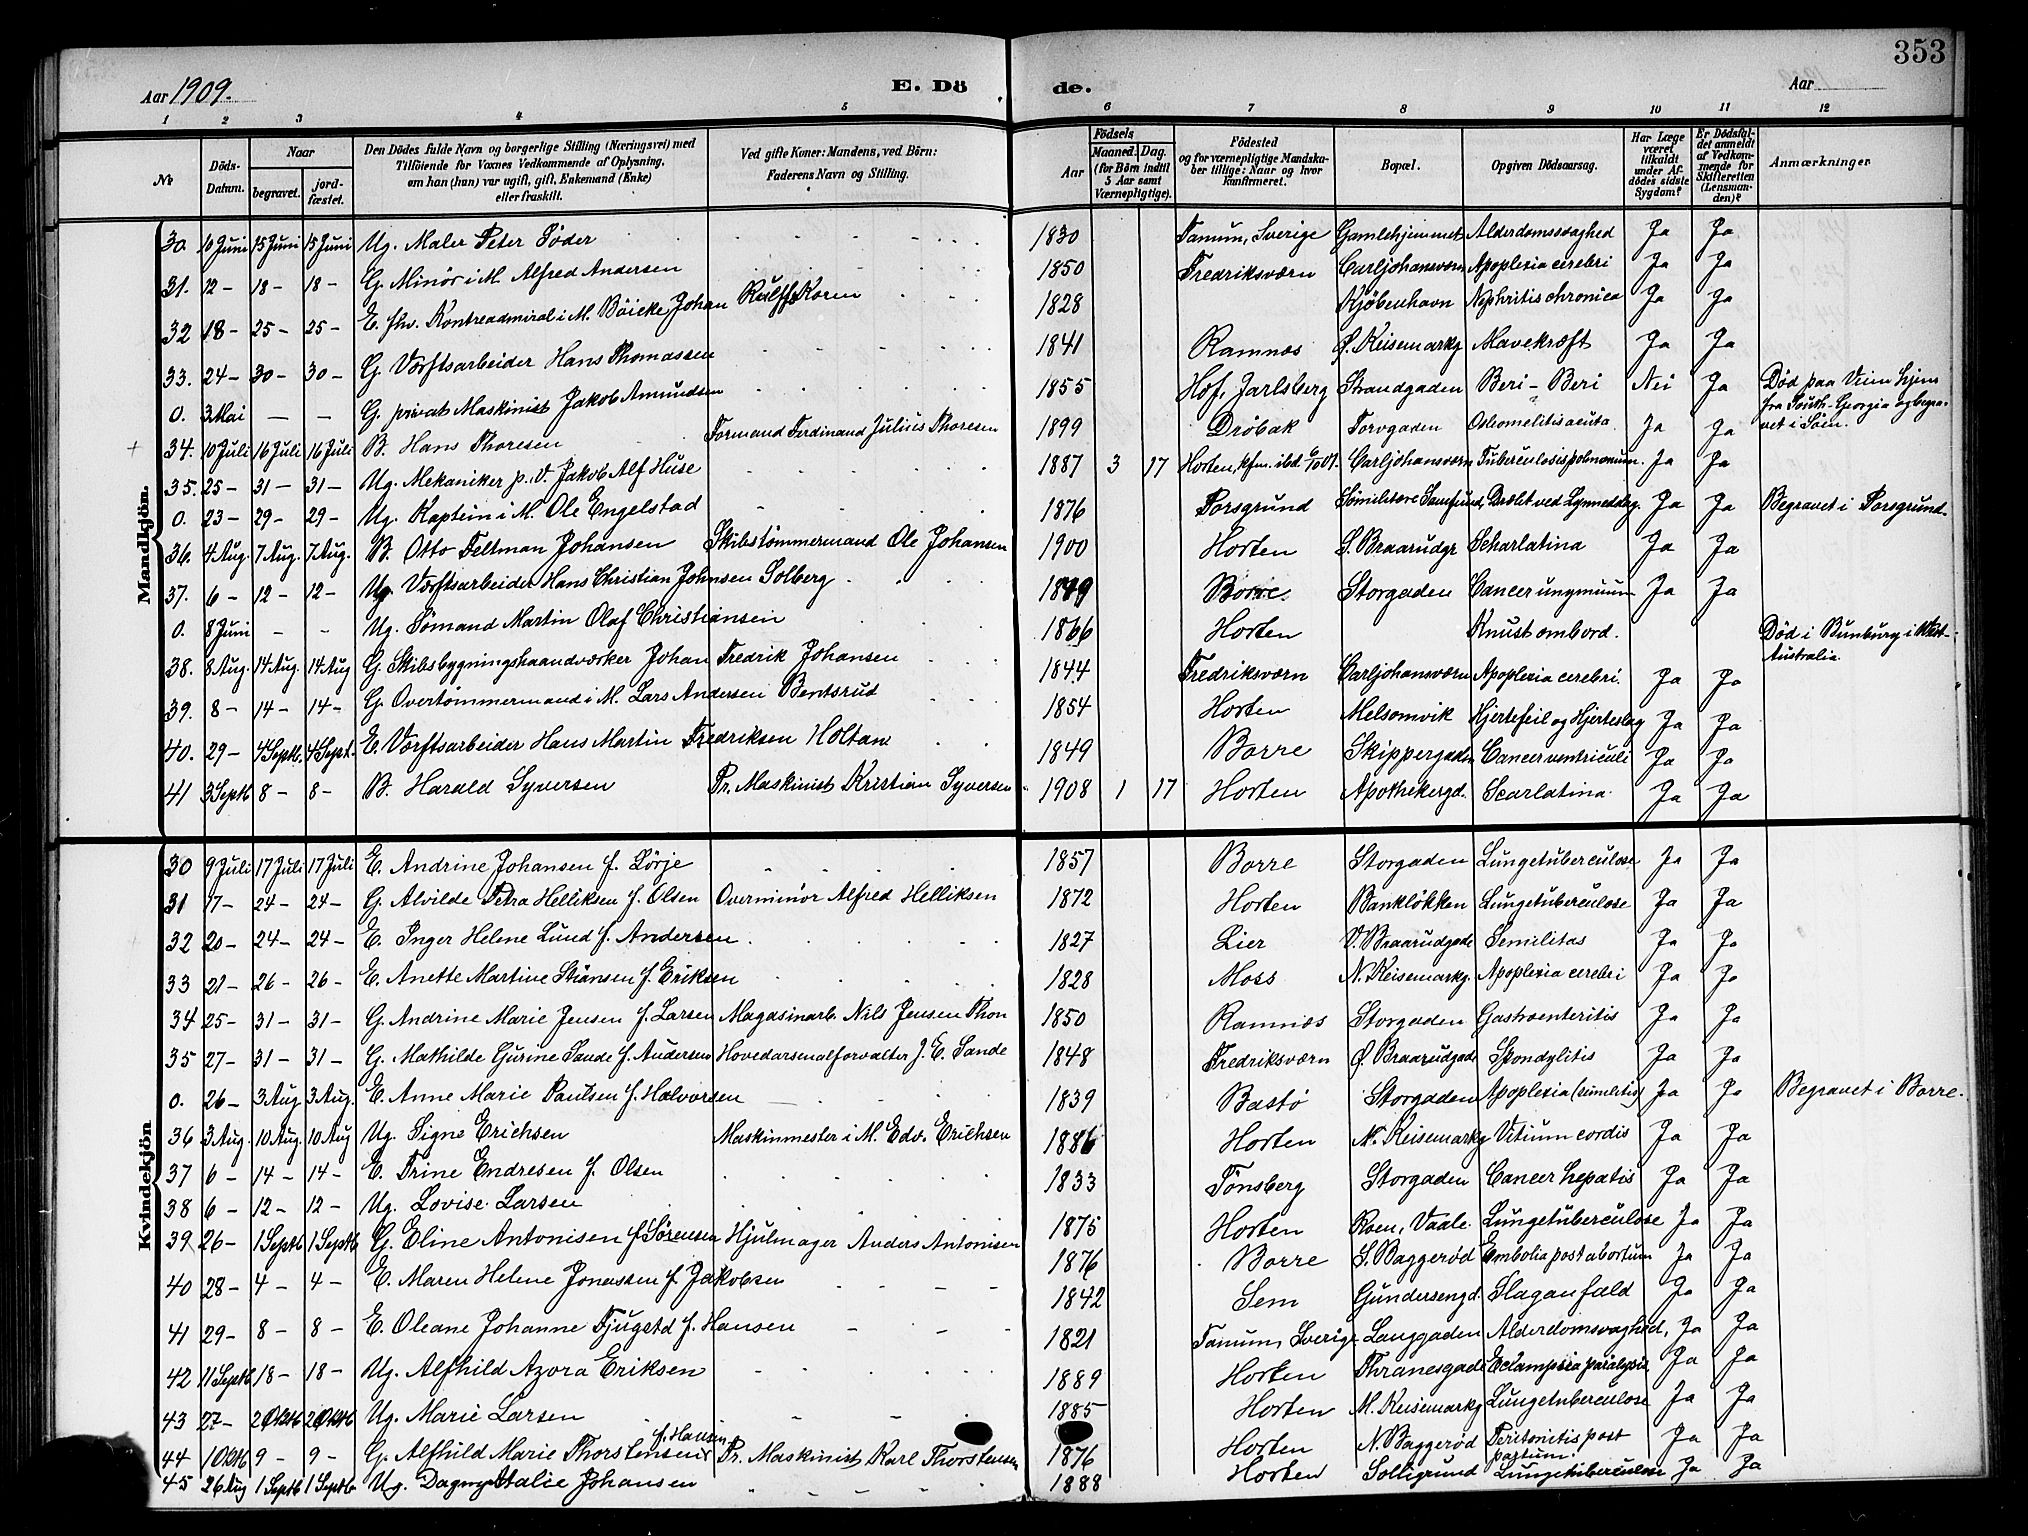 353
Aar 1909. E. Dö de. Aar
1 2 3 4 5 6 7 8 9 10 11 12
№
Döds-Datum.
Naar
begravet.
jord-fæstet.
Den Dödes fulde Navn og borgerlige Stilling (Næringsvei) med
Tilföiende for Voxnes Vedkommende af Oplysning,
om han (hun) var ugift, gift, Enkemand (Enke)
eller fraskilt.
Ved gifte Koner: Mandens, ved Börn:
Faderens Navn og Stilling.
Födsels
Aar
Maaned. Dag.
(for Börn indtil
5 Aar samt
Værnepligtige).
Födested
og for værnepligtige Mandska-
ber tillige: Naar og hvor
konfirmeret.
Bopæl.
Opgiven Dödsaarsag.
Har Læge
været
tilkaldt
under Af-
dödes sidste
Sygdom?
Er Dödsfal-
det anmeldt
af Vedkom-
mende for
Skifteretten
(Lensman-
den)?
Anmærkninger
Mandkjön.
30. 10 Juni 15 Juni 15 Juni Ug. Maler Peter Söder 1830 Tanum, Sverige Gamlehjemmet Alderdomssvaghed Ja Ja
31. 12 - 18 - 18 - G. Minör i M. Alfred Andersen 1850 Fredriksværn Carljohansværn Apoplexia cerebri Ja Ja
32 18 - 25 - 25 - E. fhv. Kontreadmiral i M. Böicke Johan Rulffs Koren 1828 Kjöbenhavn Nephritis chronica Ja Ja
33. 24 - 30 - 30 - G. Værftsarbeider Hans Thomassen 1841 Ramnæs Ö. Keisemarkg Mavekræft Ja Ja
0. 3 Mai - - G. privat Maskinist Jakob Amundsen 1855 Hof, Jarlsberg Strandgaden Beri-Beri Nei Ja Död paa Veien hjem
fra South-Georgia og begra-
vet i Söen.
34. 10 Juli 16 Juli 16 Juli B. Hans Thoresen Formand Ferdinand Julius Thoresen 1899 Dröbak Torvgaden Osteomelitis acuta. Ja Ja
35. 25 - 31 - 31 - Ug. Mekaniker p. V. Jakob Alf Huse 1887 3 17 Horten, kfm. ibd. Carljohansværn Tuberculosis polmonum. Ja Ja
0. 23 - 29 - 29 - Ug. Kaptein i M. Ole Engelstad 1876 Porsgrund Sömilitære Samfund, Dræbt ved Lynnedslag. Ja Ja Begravet i Porsgrund.
36. 4 Aug. 7 Aug. 7 Aug. B. Otto Feltman Johansen Skibstömmermand Ole Johansen 1900 Horten S. Braarudgt Scharlatina Ja Ja
37. 6 - 12 - 12 - Ug. Værftsarbeider Hans Christian Johnsen Solberg 1849 Borre. Storgaden Cancer Ja Ja
0. 8 Juni - - Ug. Sömand Martin Olaf Christiansen 1866 Horten Knust ombord. Död i Bunburg i West-
Australia.
38. 8 Aug. 14 Aug. 14 Aug G. Skibsbygningshaandværker Johan Fredrik Johansen 1844 Fredriksværn Carljohansværn Apoplexia cerebri. Ja Ja
39. 8 - 14 - 14 - G. Overtömmermand i M. Lars Andersen Bentsrud 1854 Horten Melsomvik Hjertefeil og Hjerteslag Ja Ja
40. 29 - 4 Septb. 4 Sept. E. Værftsarbeider Hans Martin Fredriksen Holtan 1849 Borre Skippergaden Cancer ventriculi Ja Ja
41 3 Septb 8 - 8 - B. Harald Syversen Pr. Maskinist Kristian Syversen 1908 1 17 Horten Apothekergd. Scarlatina Ja Ja
Kvindekjön
30 9 Juli 17 Juli 17 Juli E. Andrine Johansen f. Lörje 1857 Borre Storgaden Lungetuberculose Ja Ja
31 17 - 24 - 24 - G. Alvilde Petra Helliksen f. Olsen Overminör Alfred Helliksen 1872 Horten Banklökken Lungetuberculose Ja Ja
32 20 - 24 - 24 - E. Inger Helene Lund f. Andersen 1827 Lier V. Braarudgade Semilitas Ja Ja
33 21 - 26 - 26 - E. Anette Martine Stiansen f. Eriksen 1828 Moss N. Keisemarkg. Apoplexia cerebri Ja Ja
34 25 - 31 - 31 - G. Andrine Marie Jensen f. Larsen Magasinarb. Nils Jensen Thon 1850 Ramnæs Storgaden Gastroenteritis Ja Ja
35 27 - 31 - 31 - G. Mathilde Gurine Sande f. Andersen Hovedarsenalforvalter J. E. Sande 1848 Fredriksværn Ö. Braarudgade Spondylitis Ja Ja
0. 26 - 3 Aug 3 Aug. E. Anne Marie Paulsen f. Halvorsen 1839 Bastö Storgaden Apoplexia (similitis) Ja Ja Begravet i Borre.
36 3 Aug. 10 Aug. 10 Aug Ug. Signe Erichsen Maskinmester i M. Edv. Erichsen 1886 Horten N. Keisemarkg Vitium cordis Ja Ja
37 6 - 14 - 14 - E. Trine Endresen f. Olsen 1833 Tönsberg Storgaden Cancer hepatis Ja Ja
38 6 - 12 - 12 - Ug. Lovise Larsen 1875 Horten Roen, Vaale Lungetuberculose Ja Ja
39 26 - 1 Septb 1 Septb G. Eline Antonisen f. Sörensen Hjulmager Anders Antonisen 1876 Borre S. Baggeröd Embolia post abortum Ja Ja
40 28 - 4 - 4 - E. Maren Helene Jonassen f. Jakobsen 1842 Sem Gundersengd. Slaganfald Ja Ja
41 29 - 8 - 8 - E. Oleane Johanne Tjugstd f. Hansen 1821 Tanum, Sverige Langgaden Alderdomsvaghed, Ja Ja
42 11 Septb 18 - 18 - Ug. Alfhild Azora Eriksen 1889 Horten Thranesgade Eclampsia paralysis Ja Ja
43 27 - 2 Oktb 2 Oktb Ug. Marie Larsen 1885 Horten M. Keisemarkg Lungetuberculose Ja Ja
44 1 Oktb 9 - 9 - G. Alfhild Marie Thorstensen f. Hansen Pr. Maskinist Karl Thorstensen 1876 Horten N. Baggeröd Peritonitis post
partum Ja Ja
45 26 Aug 1 Septb 1 Septb Ug. Dagny Atalie Johansen 1888 Horten Solligrund Lungetuberculose Ja Ja